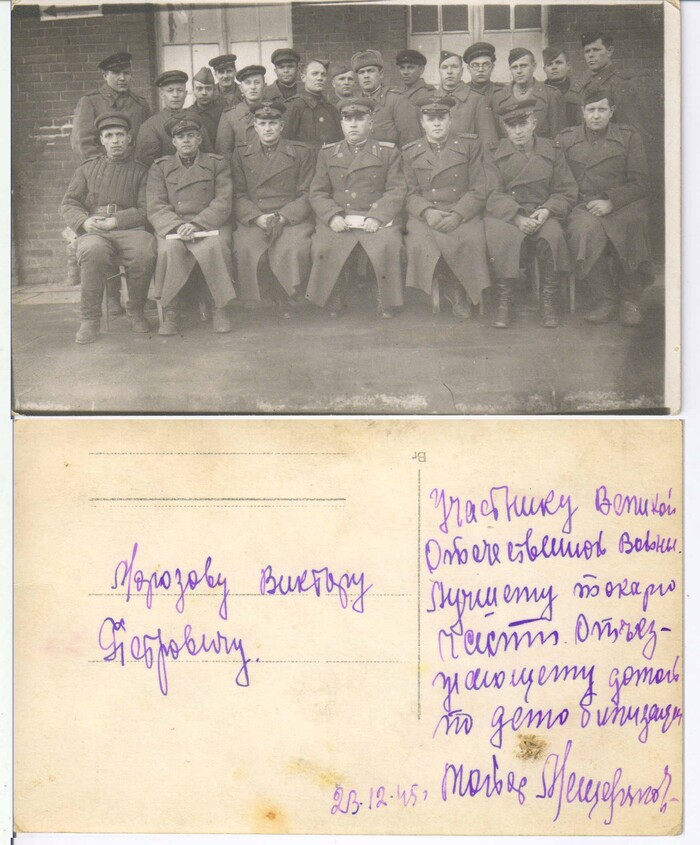 Br
Морозову Виктору
Петровичу.
Участнику Великой
Отечественной Войны.
Лучшему токарю
части. Отъез-
жающему домой
по демобилизации
Майор Мещеряков
23.12.45г